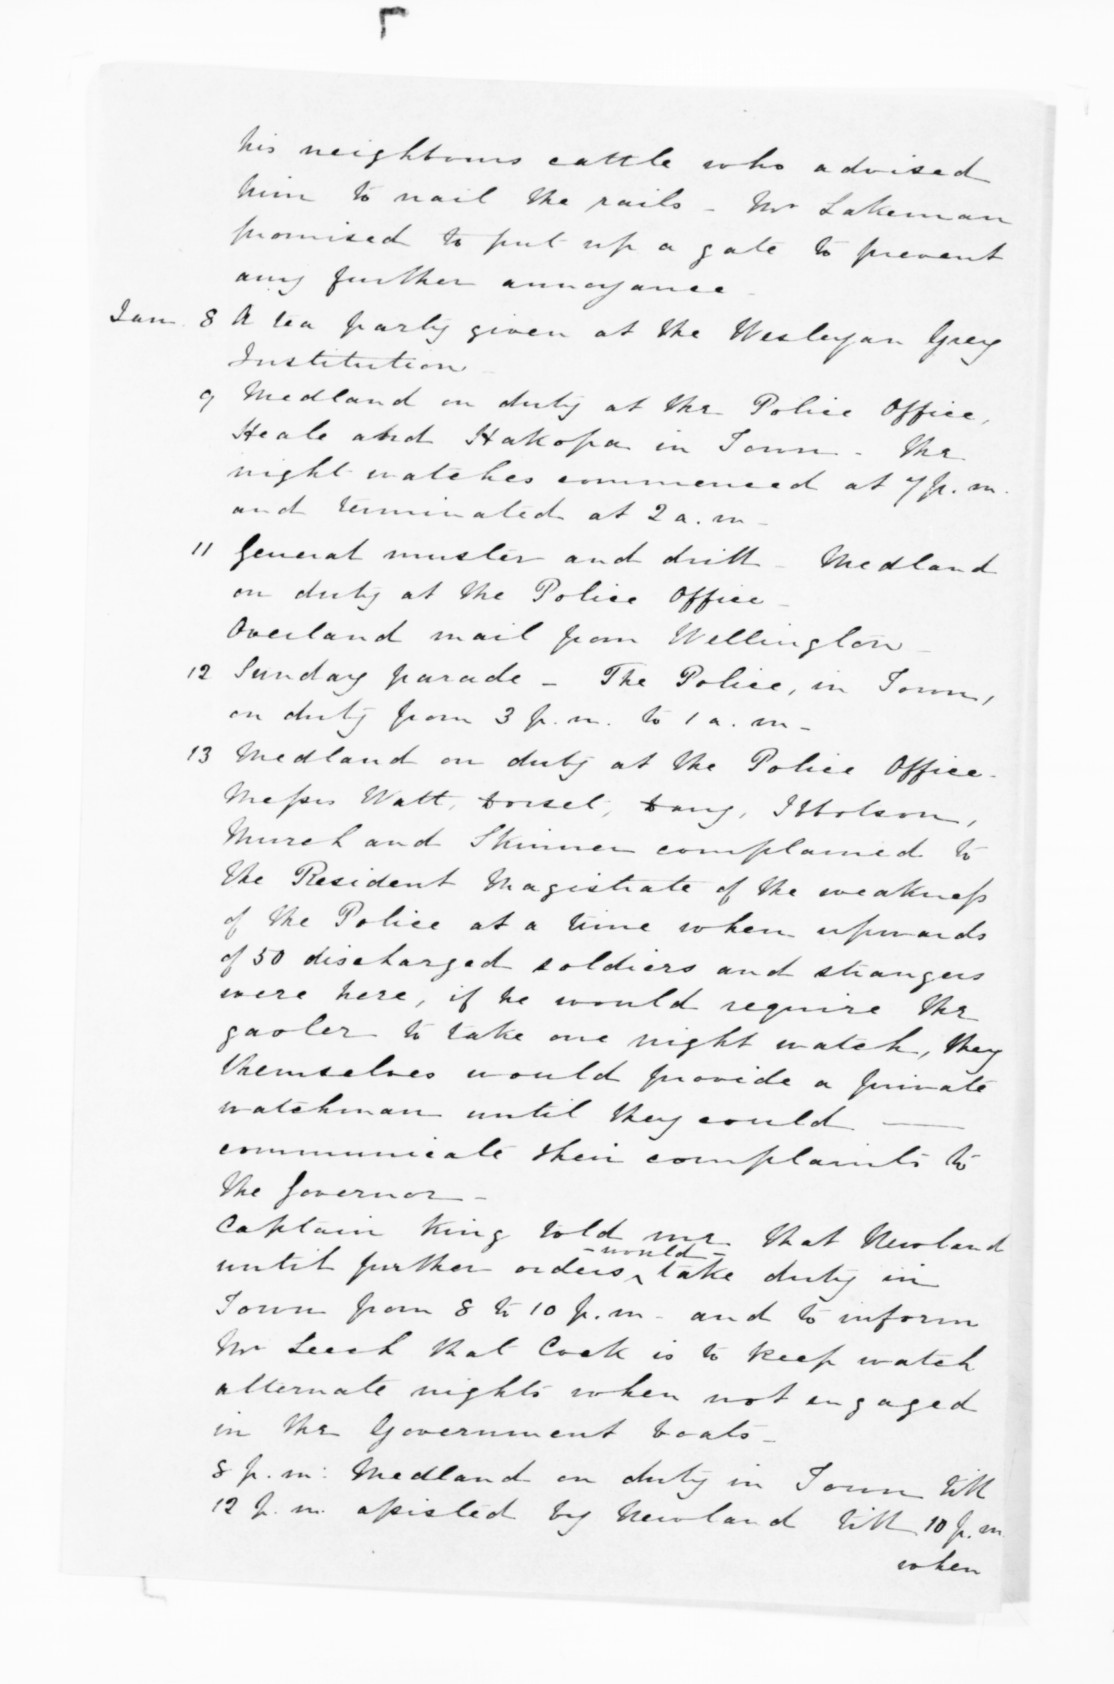 his neighbours cattle who advised
him to nail the rails - Mr Lakeman
promised to put up a gate to prevent
any further annoyance -
Jan. 8 A tea party given at the Wesleyan Grey
Institution -
9 Medland on duty at the Police Office,
Heale and Hakopa in Town - The
night watches commenced at 7 p.m.
and terminated at 2 a.m -
11 General muster and drill - Medland
on duty at the Police Office -
Overland mail from Wellington -
12 Sunday parade - The Police, in Town,
on duty from 3 p.m. to 1 a.m -
13 Medland on duty at the Police Office -
Messrs Watt, Dorset, Dany, Ibbotson,
Murch and Skinner complained to
the Resident Magistrate of the weakness
of the Police at a time when upwards
of 50 discharged soldiers and strangers
were here, if he would require the
gaoler to take one night watch, they
themselves would provide a private
watchman until they could —
communicate their complaints to
the Governor -
Captain King told me that Newland
-would-
until further orders ‸ take duty in
Town from 8 to 10 p.m. and to inform
Mr Leech that Cock is to keep watch
alternate nights when not engaged
in the Government boats -
8 p.m: Medland on duty in Town till
12 p.m. assisted by Newland till 10 p.m.
when